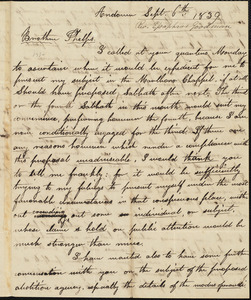 Andover Sept. 6th, 1839
Brother Phelps,
I called at your quarters, Monday,
to ascertain when it would be expedient for me to
present my subject in the Marlboro Chapel, if at all.
Should have proposed, Sabbath after next. The third
or the fourth Sabbath in this month would suit my
convenience, preferring however the fourth, because I am
now conditionally engaged for the third. If there are
any reasons however which render a compliance with
this proposal inadvisable, I would thank you
to tell me frankly: for it would be sufficiently
trying to my feelings to present my subject under the most
favorable circumstances in that conspicuous place, with-
out crowding out some individual, or subject,
whose claim is held on public attention would be
much stronger than mine.
I have wanted also to have some further
conversation with you on the subject of the proposed
abolition agency, especially the details of the modus operandi